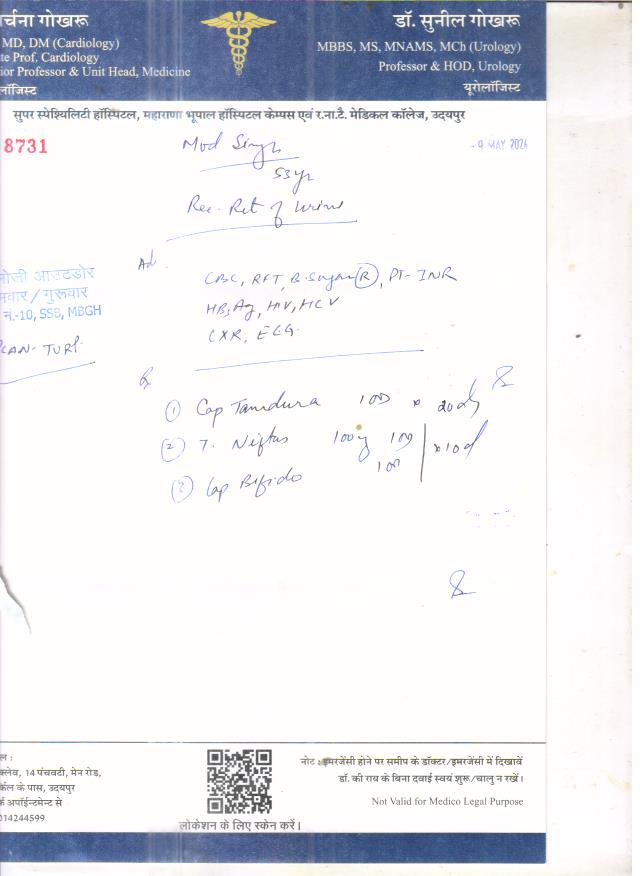 र्चना गोखरू
MD, DM (Cardiology)
te Prof. Cardiology
ior Professor & Unit Head, Medicine
लॉजिस्ट
डॉ. सुनील गोखरू
MBBS, MS, MNAMS, MCh (Urology)
Professor & HOD, Urology
यूरोलॉजिस्ट
सुपर स्पेश्यिलिटी हॉस्पिटल, महाराणा भूपाल हॉस्पिटल केम्पस एवं र.ना.टै. मेडिकल कॉलेज, उदयपुर
8731
- 9 MAY 2024
Mod Singh
53yr
Rec. Ret of Urine
Ad
CBC, RFT, B. Sugar (R), PT-INR
HBsAg, HIV, HCV
CXR, ECG
लोजी आउटडोर
मवार / गुरूवार
नं.-10, SSB, MBGH
LAN- TURP
R
1 Cap Tamdura 1OD x 20d
2 T. Niftas 100mg 1OD x 10d
3 Cap Bifido 1OD
ल :
क्लेव, 14 पंचवटी, मेन रोड,
र्कल के पास, उदयपुर
र्क अपॉईन्टमेन्ट से
014244599
लोकेशन के लिए स्केन करें।
नोट : इमरजेंसी होने पर समीप के डॉक्टर/इमरजेंसी में दिखावें
डॉ. की राय के बिना दवाई स्वयं शुरू/चालु न रखें।
Not Valid for Medico Legal Purpose